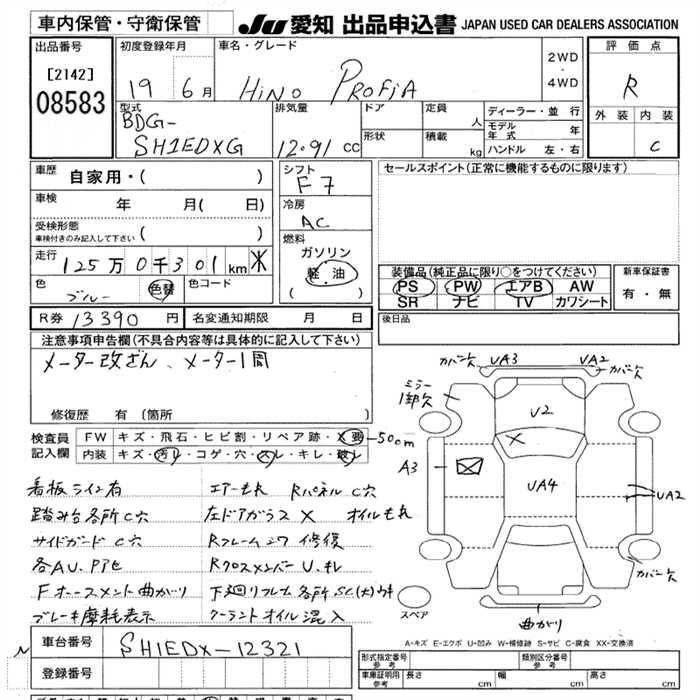 車内保管・守衛保管
JU 愛知 出品申込書 JAPAN USED CAR DEALERS ASSOCIATION
出品番号
[2142]
08583
初度登録年月
19 6月
車名・グレード
HiNO PROFiA
2WD
・
4WD
評価点
R
外装 内装
C
型式
BDG-
SH1EDXG
排気量
12.91 CC
ドア
定員
人
形状
積載
kg
ディーラー・並行
モデル年式 年
ハンドル 左・右
車歴
自家用・( )
車検
年 月( 日)
受検形態
車検付きのみ記入して下さい ( )
走行
125万0千301km ※
色
ブルー
色替
色コード
R券 13390 円
名変通知期限 月 日
シフト
F7
冷房
AC
燃料
ガソリン
軽油
( )
セールスポイント(正常に機能するものに限ります)
装備品(純正品に限り○をつけてください)
PS PW エアB AW
SR ナビ TV カワシート
新車保証書
有・無
後日品
注意事項申告欄(不具合内容等は具体的に記入して下さい)
メーター改ざん、メーター1周
修復歴 有(箇所 )
検査員
記入欄
FW キズ・飛石・ヒビ割・リペア跡・X要 50cm
内装 キズ・汚レ・コゲ・穴・スレ・キレ・破レ
看板ライン有 エアーもれ RパネルC穴
踏み台各所C穴 左ドアガラスX オイルもれ
サイドガードC穴 Rフレームコワ修復
各AU.PP色 RクロスメンバーU.キレ
F オースメント曲がり 下廻リフレム各所SC(大)ウキ
ブレーキ摩耗表示 クーラントオイル混入
カバー欠 UA3 UA2 カバー欠
ミラー
1部欠
U2
X
A3
UA4
UA2
カバー欠
スペア
曲がり
A-キズ E-エクボ U-凹み W-補修跡 S-サビ C-腐食 XX-交換済
車台番号 SH1EDX-12321
登録番号
形式指定番号
参考
類別区分番号
参考
車庫証明用
参考
長さ cm
幅 cm
高さ cm